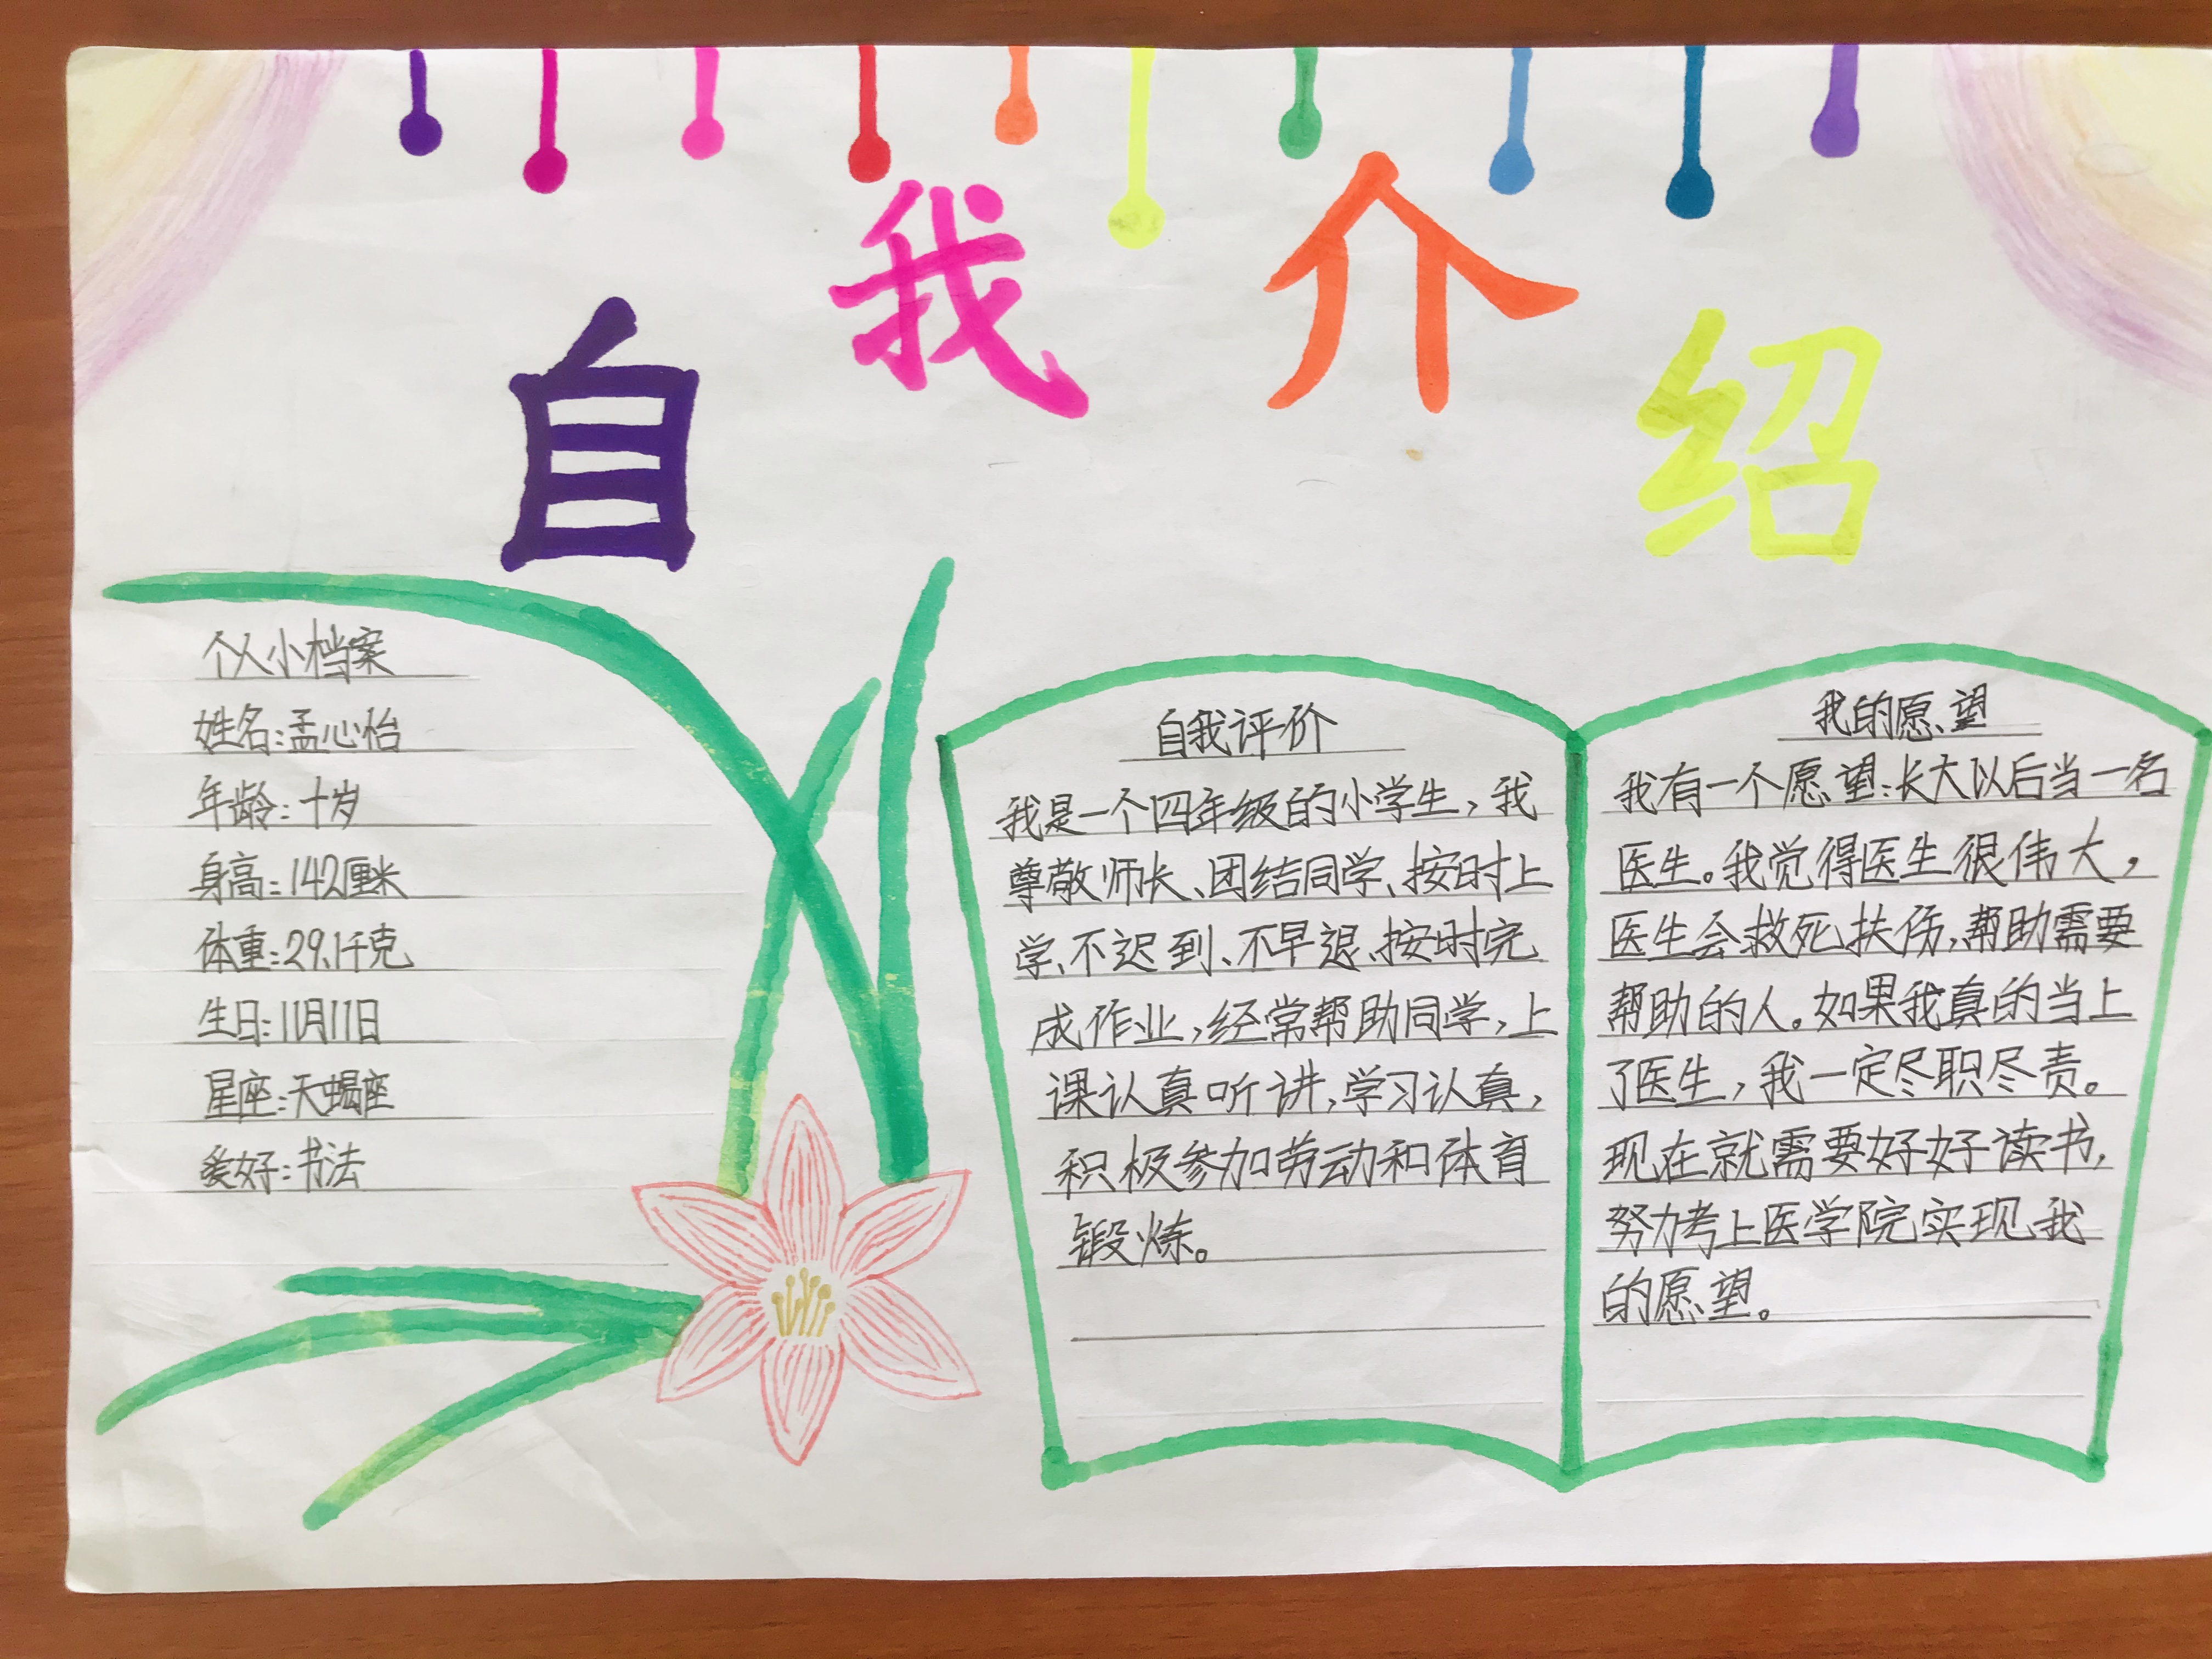 自我介绍
个人小档案
姓名:孟心怡
年龄:十岁
身高:142厘米
体重:29.1千克
生日:11月11日
星座:天蝎座
爱好:书法
自我评价
我是一个四年级的小学生,我
尊敬师长、团结同学、按时上
学、不迟到、不早退、按时完
成作业,经常帮助同学,上
课认真听讲,学习认真,
积极参加劳动和体育
锻炼。
我的愿望
我有一个愿望:长大以后当一名
医生。我觉得医生很伟大,
医生会救死扶伤,帮助需要
帮助的人。如果我真的当上
了医生,我一定尽职尽责。
现在就需要好好读书,
努力考上医学院实现我
的愿望。